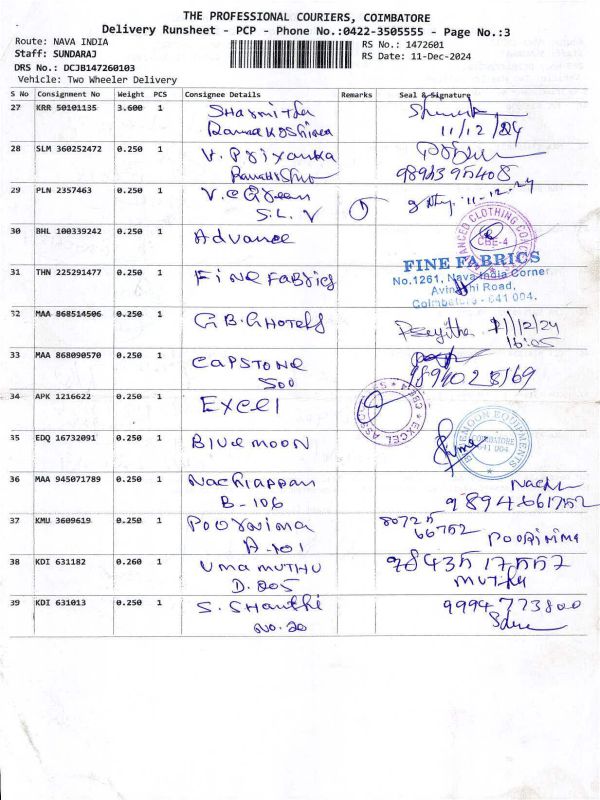 THE PROFESSIONAL COURIERS, COIMBATORE
Delivery Runsheet - PCP - Phone No.:0422-3505555 - Page No.:3
Route: NAVA INDIA
RS No.: 1472601
Staff: SUNDARAJ
RS Date: 11-Dec-2024
DRS No.: DCJB147260103
Vehicle: Two Wheeler Delivery
S No Consignment No Weight PCS Consignee Details Remarks Seal & Signature
27 KRR 50101135 3.600 1 Sharmitha
11/12/24
28 SLM 360252472 0.250 1 V. Priyanka
9894395408
29 PLN 2357463 0.250 1
11-12-24
S.L.V
30 BHL 100339242 0.250 1 Advance
CBE-4
31 THN 225291477 0.250 1 Fine Fabrics
FINE FABRICS
No.1261, Nava India Corner
Avinashi Road,
Coimbatore - 641 004.
32 MAA 868514506 0.250 1 G.B.G Hotels
11/12/24
16:05
33 MAA 868090570 0.250 1 Capstone
500
34 APK 1216622 0.250 1 Excel
EXCEL ASSO
35 EDQ 16732091 0.250 1 Bluemoon
BLUEMOON EQUIPMENTS
COIMBATORE
641 004
36 MAA 945071789 0.250 1 Nachiappan
B-106
9894661752
37 KMU 3609619 0.250 1 Poornima
80725
66752
Poornima
A-101
38 KDI 631182 0.260 1 Uma Muthu
9843517557
D.005
Muthu
39 KDI 631013 0.250 1 S. Shanthi
9994773800
No.20